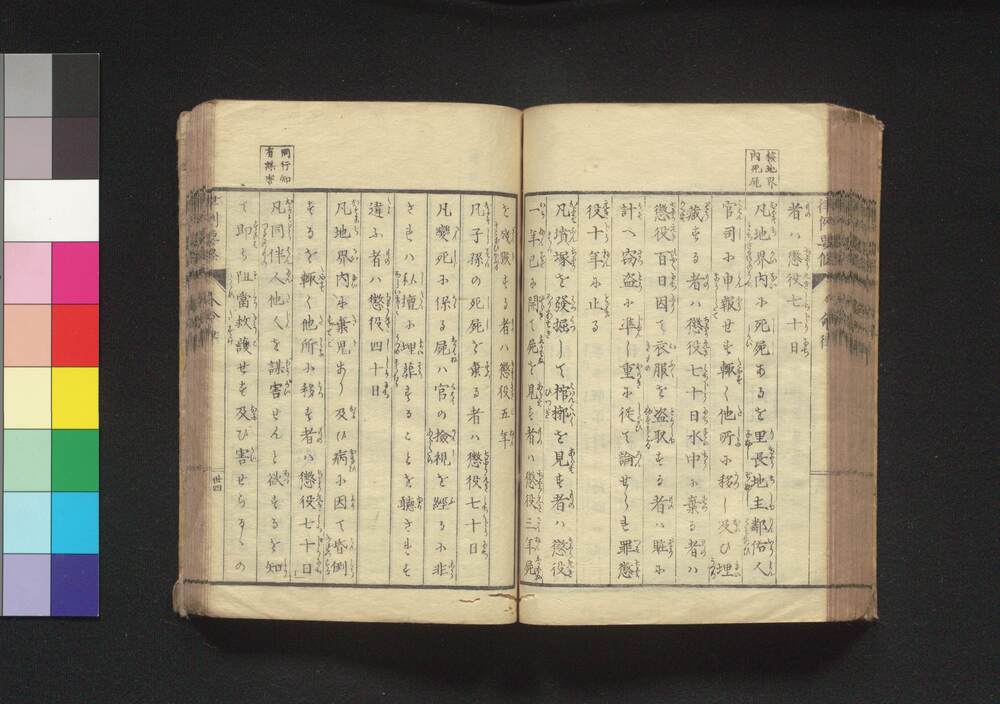 者ハ懲役七十日
凡地界内ニ死屍あるを里長地主鄰佑人
官司ニ申報せず輙く他所ニ移し及ひ埋
藏する者ハ懲役七十日水中ニ棄る者ハ
懲役百日因て衣服を盗取する者ハ贓ニ
計へ窃盗ニ準し重ニ従て論せしも罪懲
役十年ニ止る
凡墳塚を發掘して棺槨を見す者ハ懲役
一年已ニ開て死を見す者ハ懲役三年屍
を殘毀する者ハ懲役五年
凡子孫の死屍を棄る者ハ懲役七十日
凡變死ニ係る屍ハ官の撿視を經るニ非
されハ私擅ニ埋葬することを聽さす
違ふ者ハ懲役四十日
凡地界内ニ棄児あり及ひ病ニ因て昏倒
するを輙く他所ニ移す者ハ懲役七十日
同行知
有謀害
凡同伴人他人を謀害せんと欲するを知
て即ち阻當救護せす及ひ害せらるゝの
丗四